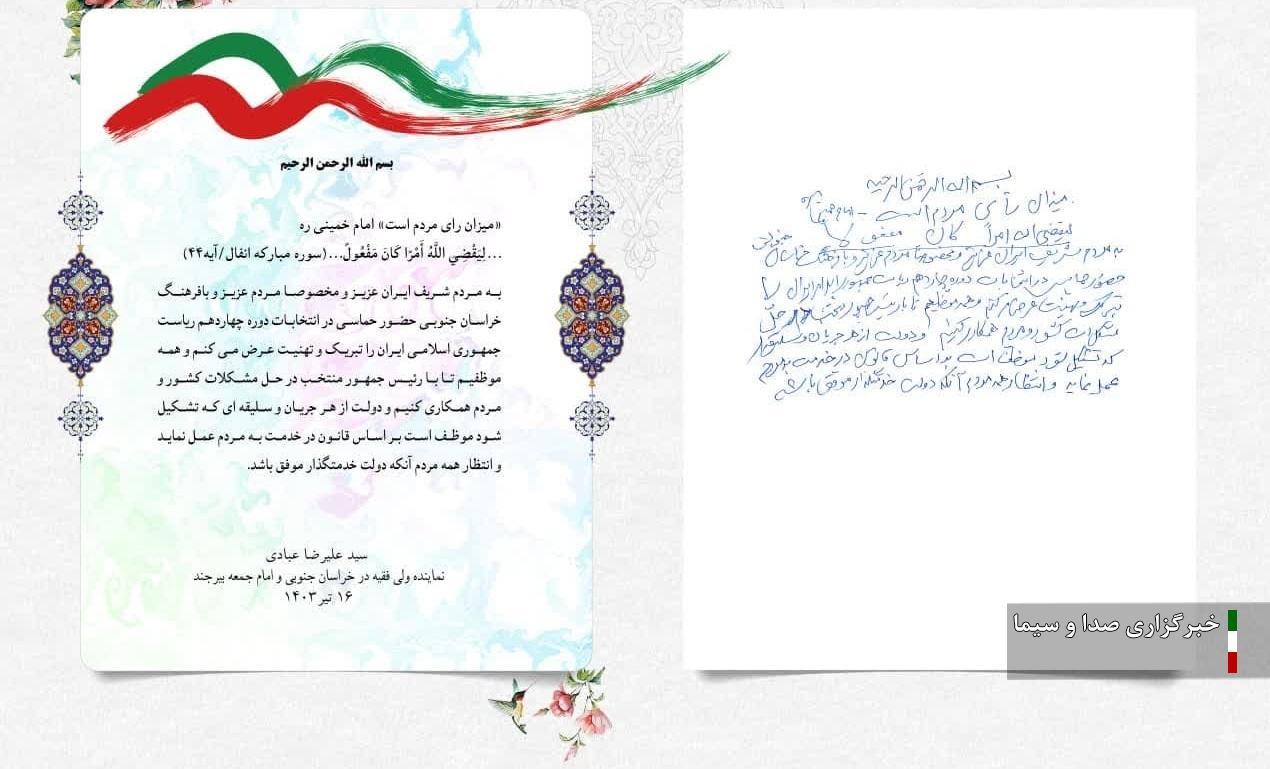 بسم الله الرحمن الرحیم
«میزان رای مردم است» امام خمینی ره
...لِيَقْضِيَ اللَّهُ أَمْرًا كَانَ مَفْعُولً...(سوره مبارکه انفال/آیه۴۴)
به مردم شریف ایران عزیز و مخصوصا مردم عزیز و بافرهنگ
خراسان جنوبی حضور حماسی در انتخابات دوره چهاردهم ریاست
جمهوری اسلامی ایران را تبریک و تهنیت عرض می کنم و همه
موظفیم تا با رئیس جمهور منتخب در حل مشکلات کشور و
مردم همکاری کنیم و دولت از هر جریان و سلیقه ای که تشکیل
شود موظف است بر اساس قانون در خدمت به مردم عمل نماید
و انتظار همه مردم آنکه دولت خدمتگذار موفق باشد.
سید علیرضا عبادی
نماینده ولی فقیه در خراسان جنوبی و امام جمعه بیرجند
۱۶ تیر ۱۴۰۳
بسم الله الرحمن الرحیم
میزان رأی مردم است - امام خمینی ره
لیقضی الله امراً کان مفعولا
به مردم شریف ایران عزیز و مخصوصاً مردم عزیز و بافرهنگ خراسان جنوبی
حضور حماسی در انتخابات دوره چهاردهم ریاست جمهوری اسلامی ایران را
تبریک و تهنیت عرض می کنم و همه موظفیم تا با رئیس جمهور منتخب در حل
مشکلات کشور و مردم همکاری کنیم و دولت از هر جریان و سلیقه ای
که تشکیل شود موظف است بر اساس قانون در خدمت به مردم
عمل نماید و انتظار همه مردم آنکه دولت خدمتگذار موفق باشد
خبرگزاری صدا و سیما